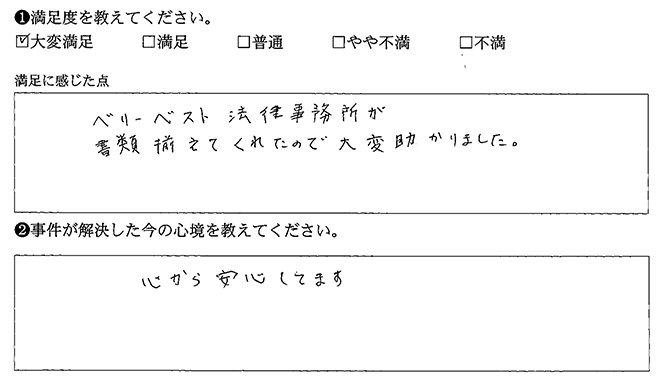 ❶満足度を教えてください。
☑大変満足 □満足 □普通 □やや不満 □不満
満足に感じた点
ベリーベスト法律事務所が
書類揃えてくれたので大変助かりました。
❷事件が解決した今の心境を教えてください。
心から安心してます